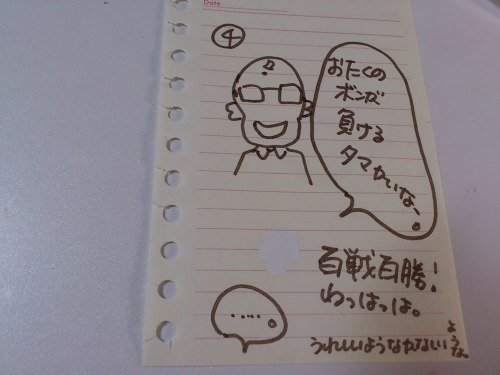 Date
④
おたくの
ボンが
負ける
タマかいなー。
百戦百勝!
わっはっは。
.....。
うれしいようなかなしい
ような。